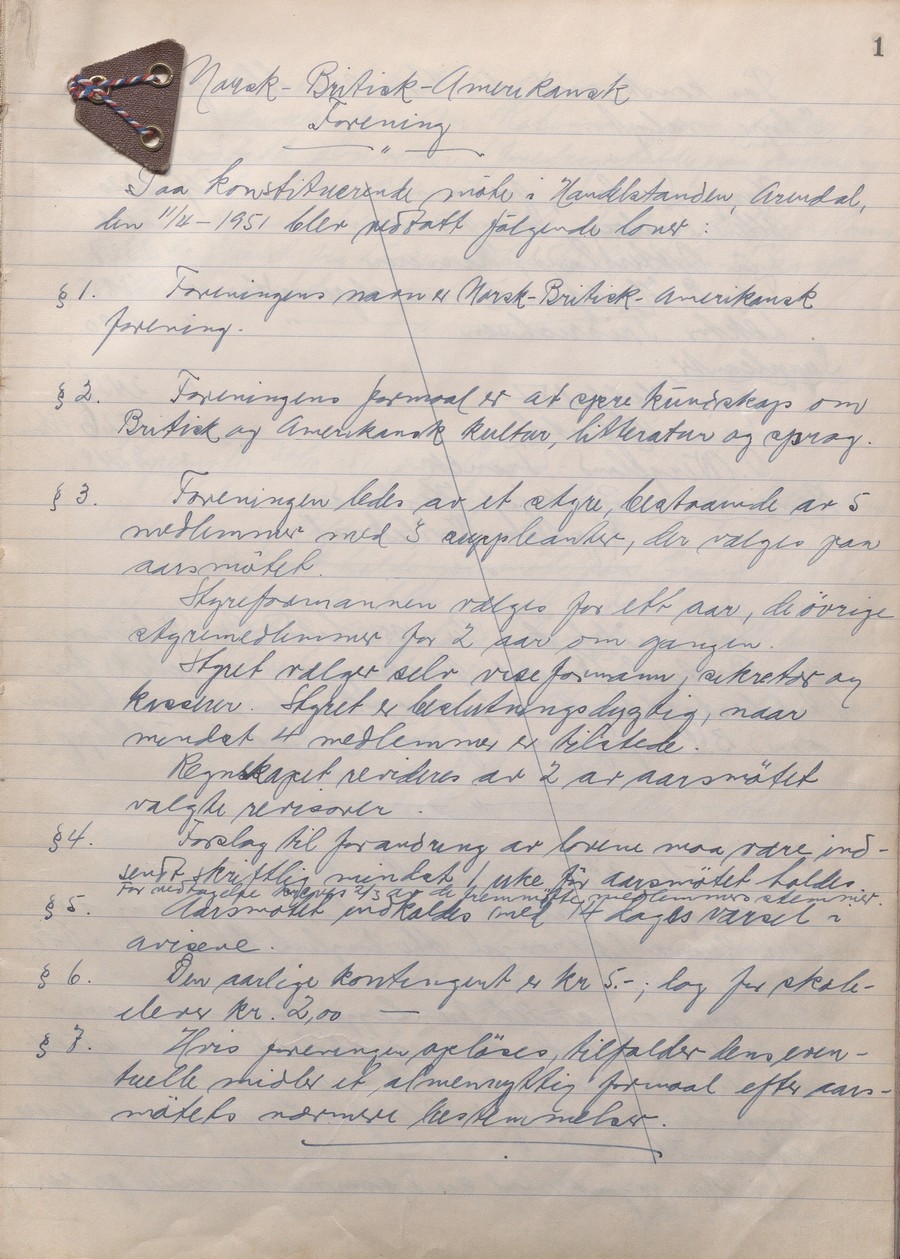 1
Norsk-Britisk-Amerikansk
Forening
"
Paa konstituerende möte i Handelstanden, Arendal,
den 11/4-1951 blev vedtatt fölgende lover:
§ 1. Foreningens navn er Norsk-Britisk-Amerikansk
forening.
§ 2. Foreningens formaal er at spre kundskap om
Britisk og Amerikansk kultur, litteratur og sprog.
§ 3. Foreningen ledes av et styre, bestaaende av 5
medlemmer med 3 suppleanter, der vælges paa
aarsmötet.
Styreformannen vælges for ett aar, de övrige
styremedlemmer for 2 aar om gangen.
Styret vælger selv viseformann, sekretær og
kasserer. Styret er beslutningsdygtig, naar
mindst 4 medlemmer er tilstede.
Regnskapet revideres av 2 av aarsmötet
valgte revisorer.
§4. Forslag til forandring av lovene maa være ind-
sendt skriftlig mindst 1 uke för aarsmötet holdes.
For vedtagelse kreves 2/3 av de fremmötte medlemmers stemmer.
§ 5. Aarsmötet indkaldes med 14 dages varsel i
avisene.
§ 6. Den aarlige kontingent er kr 5.-; og for skole-
elever kr. 2,00 —
§ 7. Hvis foreningen oplöses, tilfalder dens even-
tuelle midler et almennyttig formaal efter aars-
mötets nærmere bestemmelser.